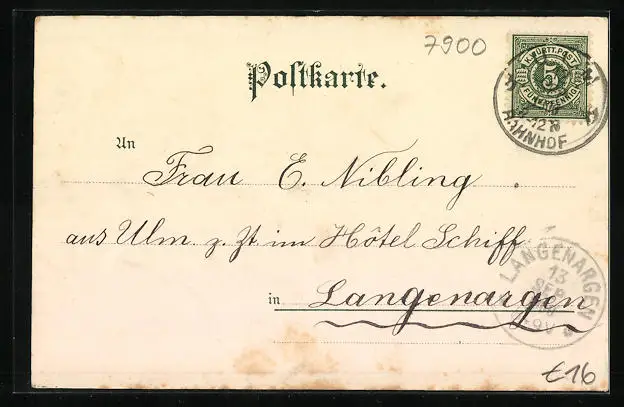 7900
Postkarte.
K. WÜRTT. POST
5
FÜNF PFENNIG
BAHNHOF
An
Frau E. Nibling
aus Ulm z. Zt im Hôtel Schiff
in Langenargen
LANGENARGEN
13
SEP
€16